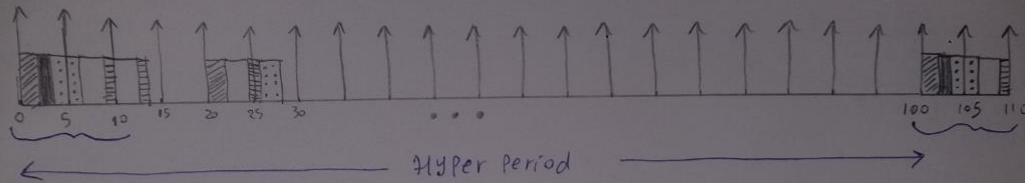 0 5 10 15 20 25 30 100 105 110
Hyper Period